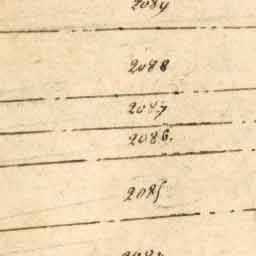 2089
2088
2087
2086.
2085
2084